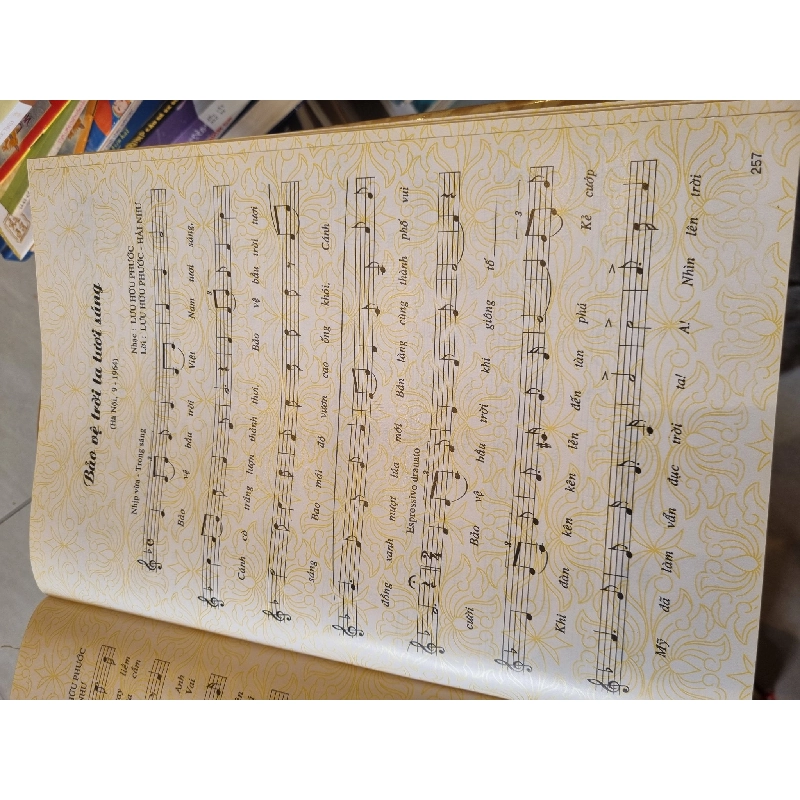 Bảo vệ trời ta tươi sáng
(Hà Nội, 9 - 1964)
Nhạc : LƯU HỮU PHƯỚC
Lời : LƯU HỮU PHƯỚC - HẢI NHƯ
Nhịp vừa - Trong sáng
Bảo vệ bầu trời Việt Nam tươi sáng,
Cánh cò trắng lượn thảnh thơi. Bảo vệ bầu trời tươi
sáng Bao mái đỏ vươn cao ống khói. Cánh
đồng xanh mượt lúa mới Bản làng cùng thành phố vui
Espressivo dramato
cười Bảo vệ bầu trời khi giông tố
Khi đàn kên kên đến tàn phá Kẻ cướp
Mỹ đã làm vẩn đục trời ta! A! Nhìn lên trời
257
HỮU PHƯỚC
NHƯ
liềm
cầm
Anh
Vai